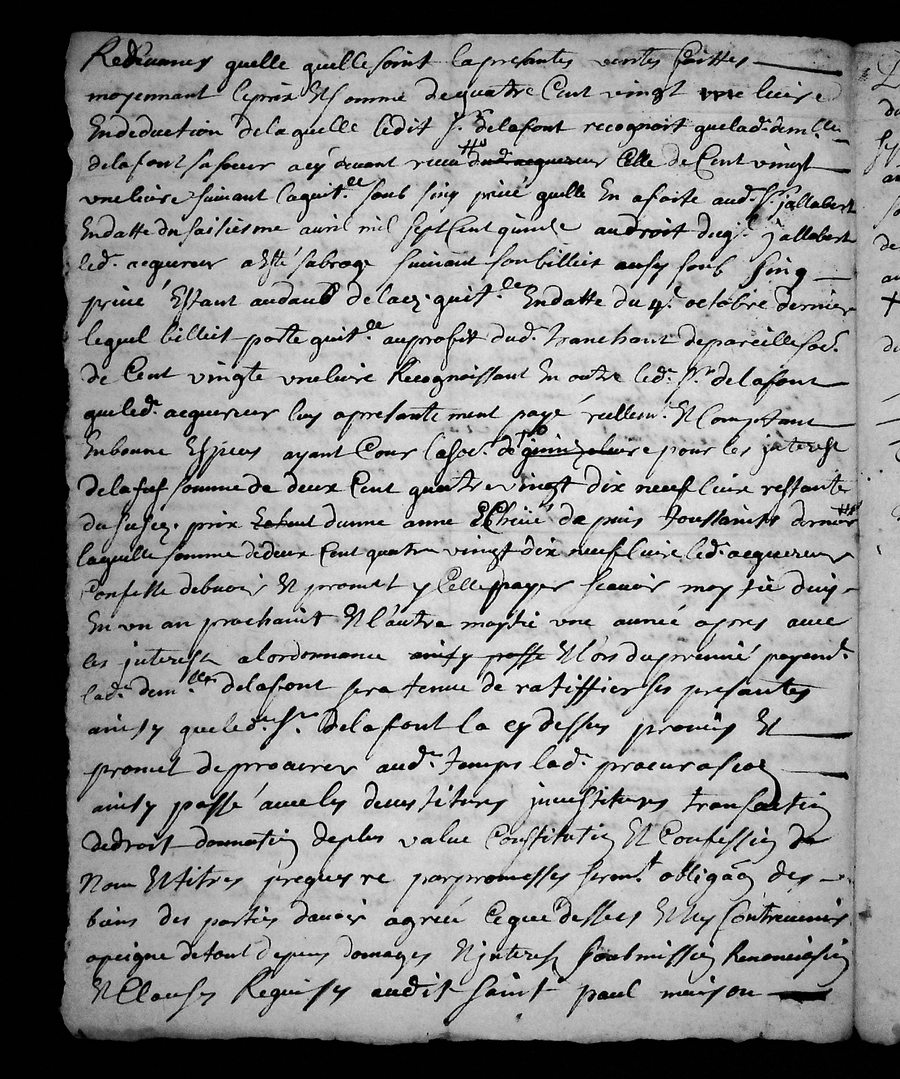 Redevances quelle quelle soint la presantes ventes faittes
moyennant le prix Et somme de quatre Cent vingt livre
En deduction de laquelle ledit Sr. delafont recognoit que lad. dem.lle
delafont sa soeur a cy devant receu dud. acquereur Celle de Cent vingt
une livre suivant la quit.ce soub sing privé quelle En a faite aud. Sr. jallabert
En datte du saisiesme avril mil sept Cent quinse au droit duq. Sr. jallabert
led. acquereur a Esté subrogé suivant son billiet aussy soub sing
privé Estant au daub de lad. quit.ce En datte du 4e. octobre dernier
lequel billiet porte quit.ce au profit dud. tranchant de pareille so.e
de Cent vingte une livre Recognoissant En outre led. Sr. delafont
que led. acquereur luy a presantement payé reellem.t Et Comptant
En bonne Especes ayant Cour la so.e de livre pour les interest
de la somme de deux Cent quatre vingt dix neuf livre restante
du susd. prix dunne anne Echeue depuis Toussaints dernier
laquelle somme de deux Cent quatre vingt dix neuf livre led. acquereur
Confesse debvoir Et promet y Celle payer scavoir moytié d'icy
En un an prochaint Et l'autre moytié une année apres avec
les interest a lordonnance ainsy passe Et lors du premié payem.t
lad. dem.lle delafont sera tenue de ratiffier ses presantes
ainsy que led. Sr. delafont la cy dessus promis Et
promet de procurer aud. temps lad. procuration
ainsy passé avec les devestitures investitures translation
de droit donnation de plus value Constitution Et Confession de
Nom Et titres precquere par promesses serm.t obligaon des
biens des parties d'avoir agreé Ce que dessus Et ny Contrevenir
a peigne de tout depens domages Et interest soubmission Renonciation
Et Clauses Requises audit saint paul maison